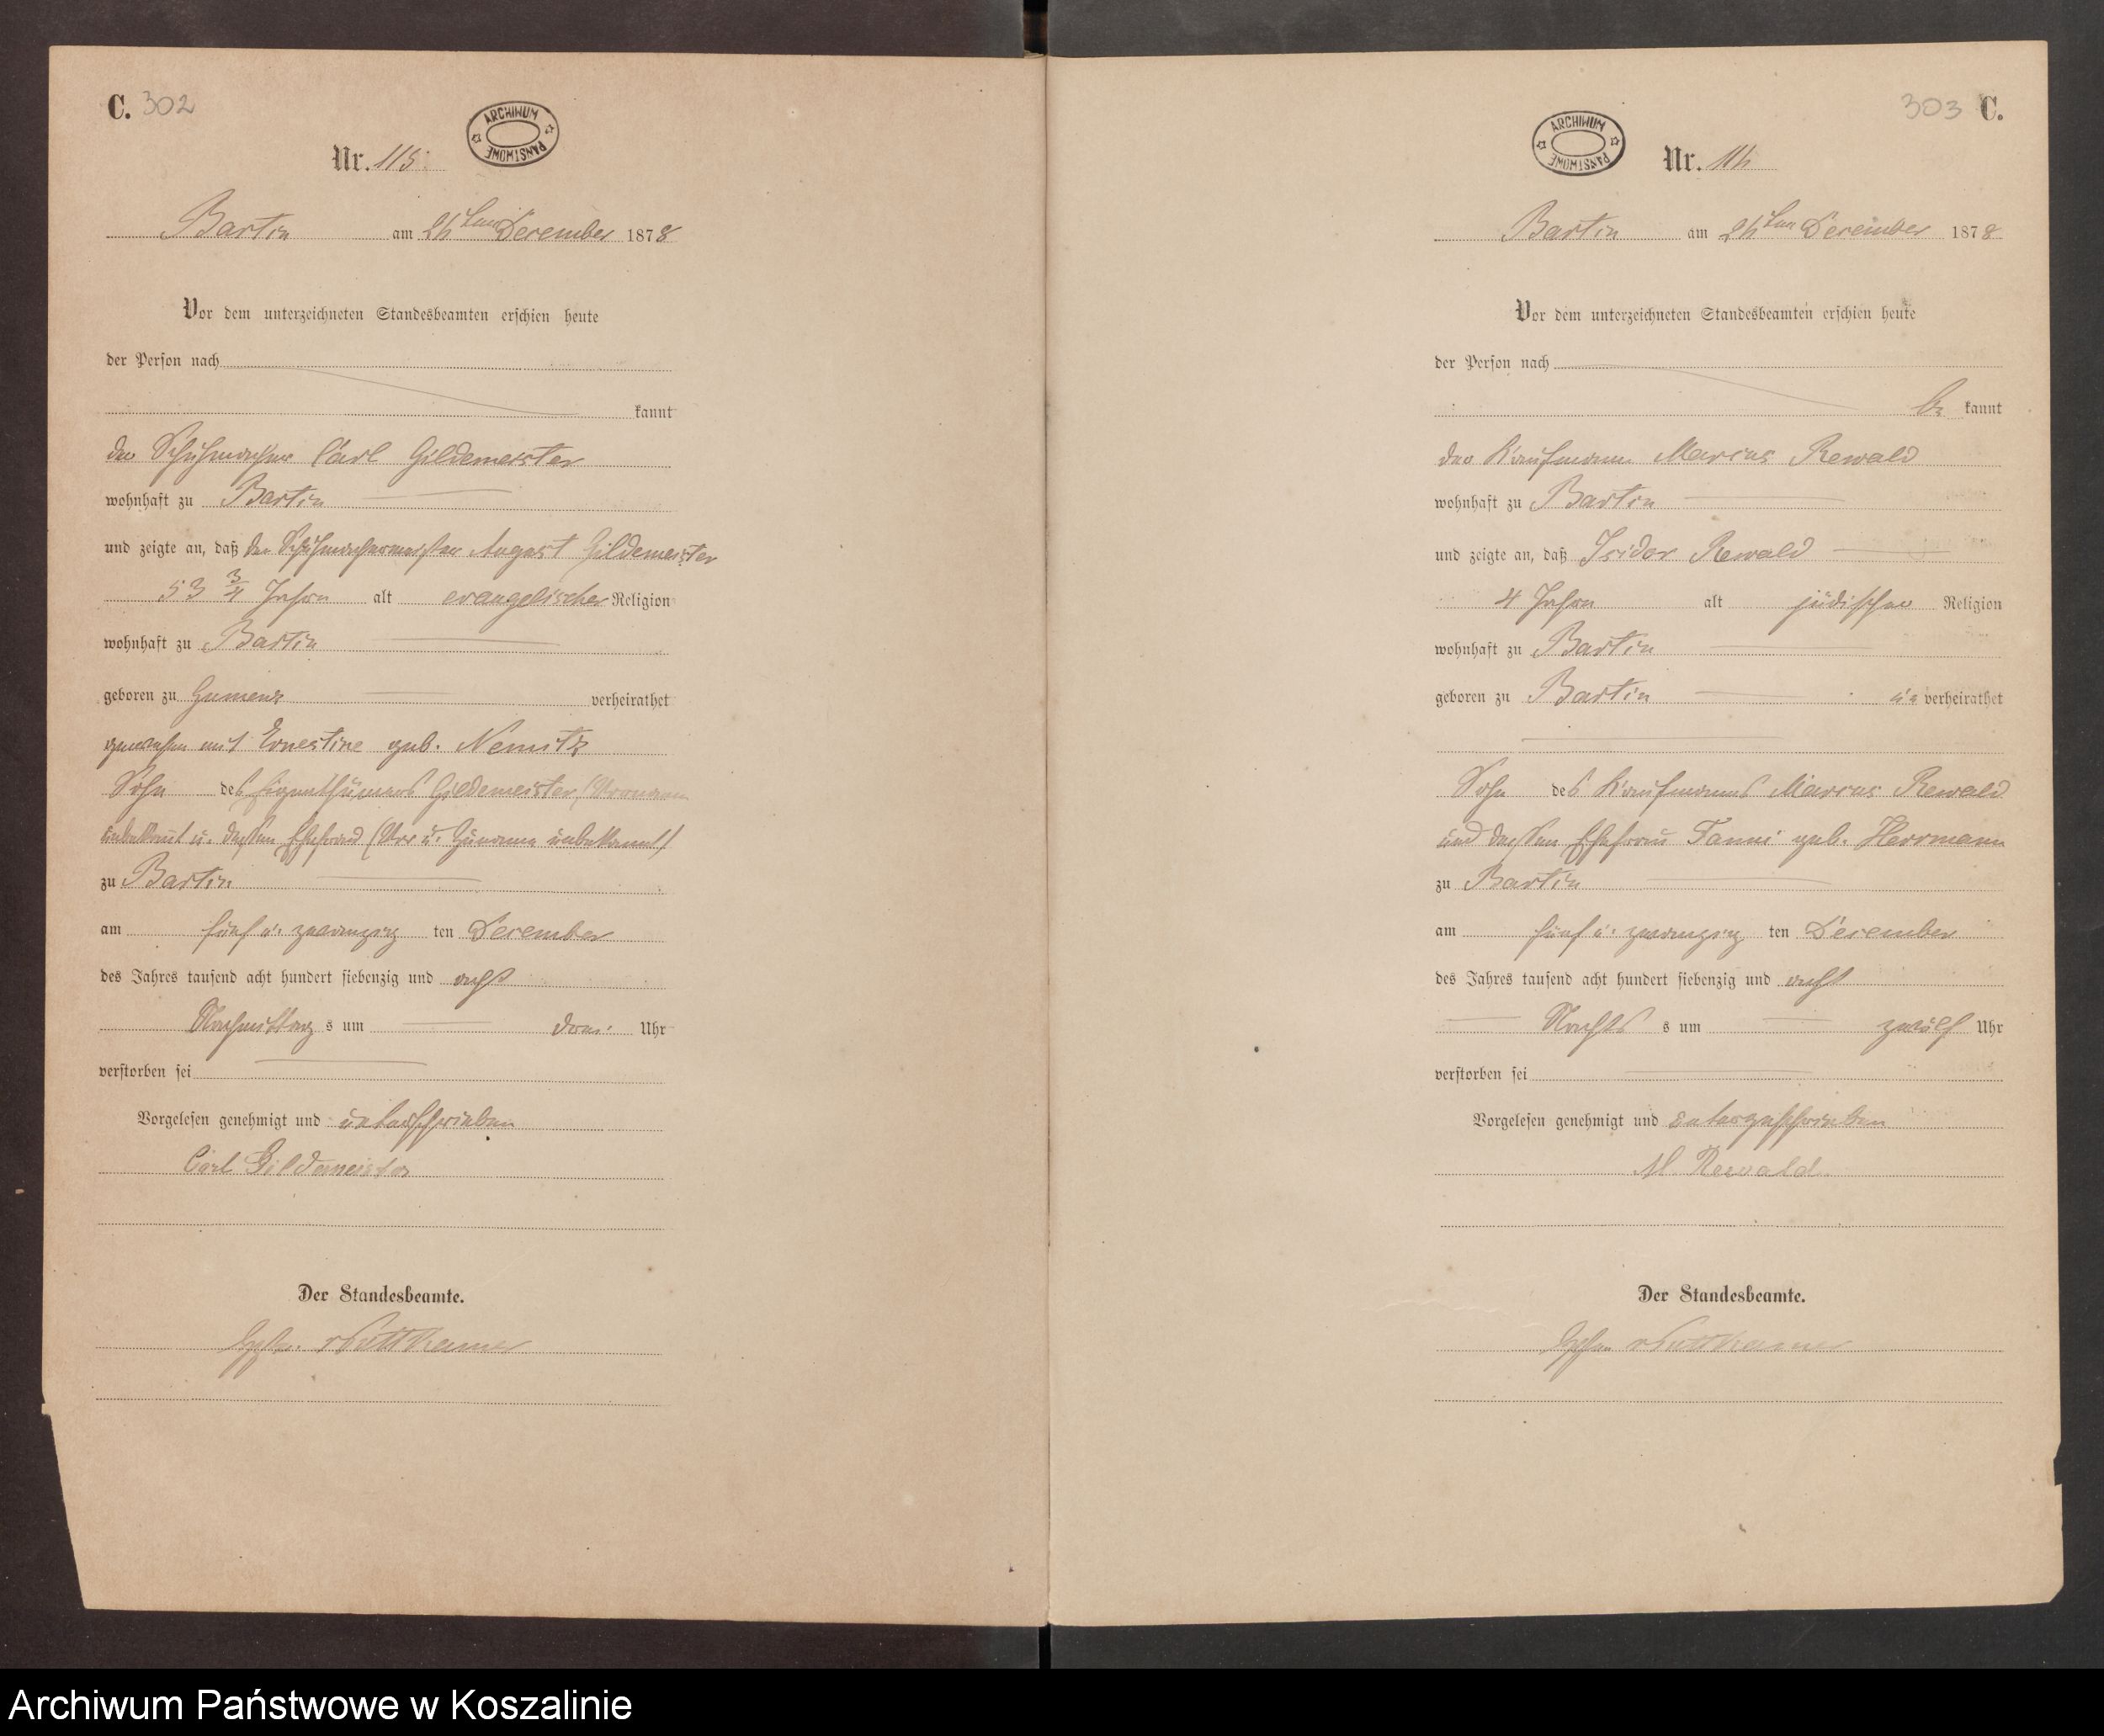 C. 302
ARCHIWUM PAŃSTWOWE
Nr. 115.
Bartin am 26ten December 1878
Vor dem unterzeichneten Standesbeamten erschien heute
der Person nach
kannt
der Schuhmacher Carl Gildemeister
wohnhaft zu Bartin
und zeigte an, daß der Schuhmachermeister August Gildemeister
53 3/4 Jahre alt evangelischer Religion
wohnhaft zu Bartin
geboren zu Gumenz verheirathet
gewesen mit Ernestine geb. Nemitz
Sohn des Eigenthümers Gildemeister, (Vorname
unbekannt u. dessen Ehefrau (Vor u. Zuname unbekannt)
zu Bartin
am fünf u. zwanzig ten December
des Jahres tausend acht hundert siebenzig und acht
Nachmittag s um drei Uhr
verstorben sei
Vorgelesen genehmigt und unterschrieben
Carl Gildemeister
Der Standesbeamte.
v Puttkamer
303 C.
ARCHIWUM PAŃSTWOWE
Nr. 116
Bartin am 26ten December 1878
Vor dem unterzeichneten Standesbeamten erschien heute
der Person nach
be kannt
der Kaufmann Marcus Rewald
wohnhaft zu Bartin
und zeigte an, daß Isidor Rewald
4 Jahre alt jüdischer Religion
wohnhaft zu Bartin
geboren zu Bartin un verheirathet
Sohn des Kaufmanns Marcus Rewald
und dessen Ehefrau Fanni geb. Herrmann
zu Bartin
am fünf u. zwanzig ten December
des Jahres tausend acht hundert siebenzig und acht
Nachts s um zwölf Uhr
verstorben sei
Vorgelesen genehmigt und untergeschrieben
M Rewald.
Der Standesbeamte.
v Puttkamer
Archiwum Państwowe w Koszalinie